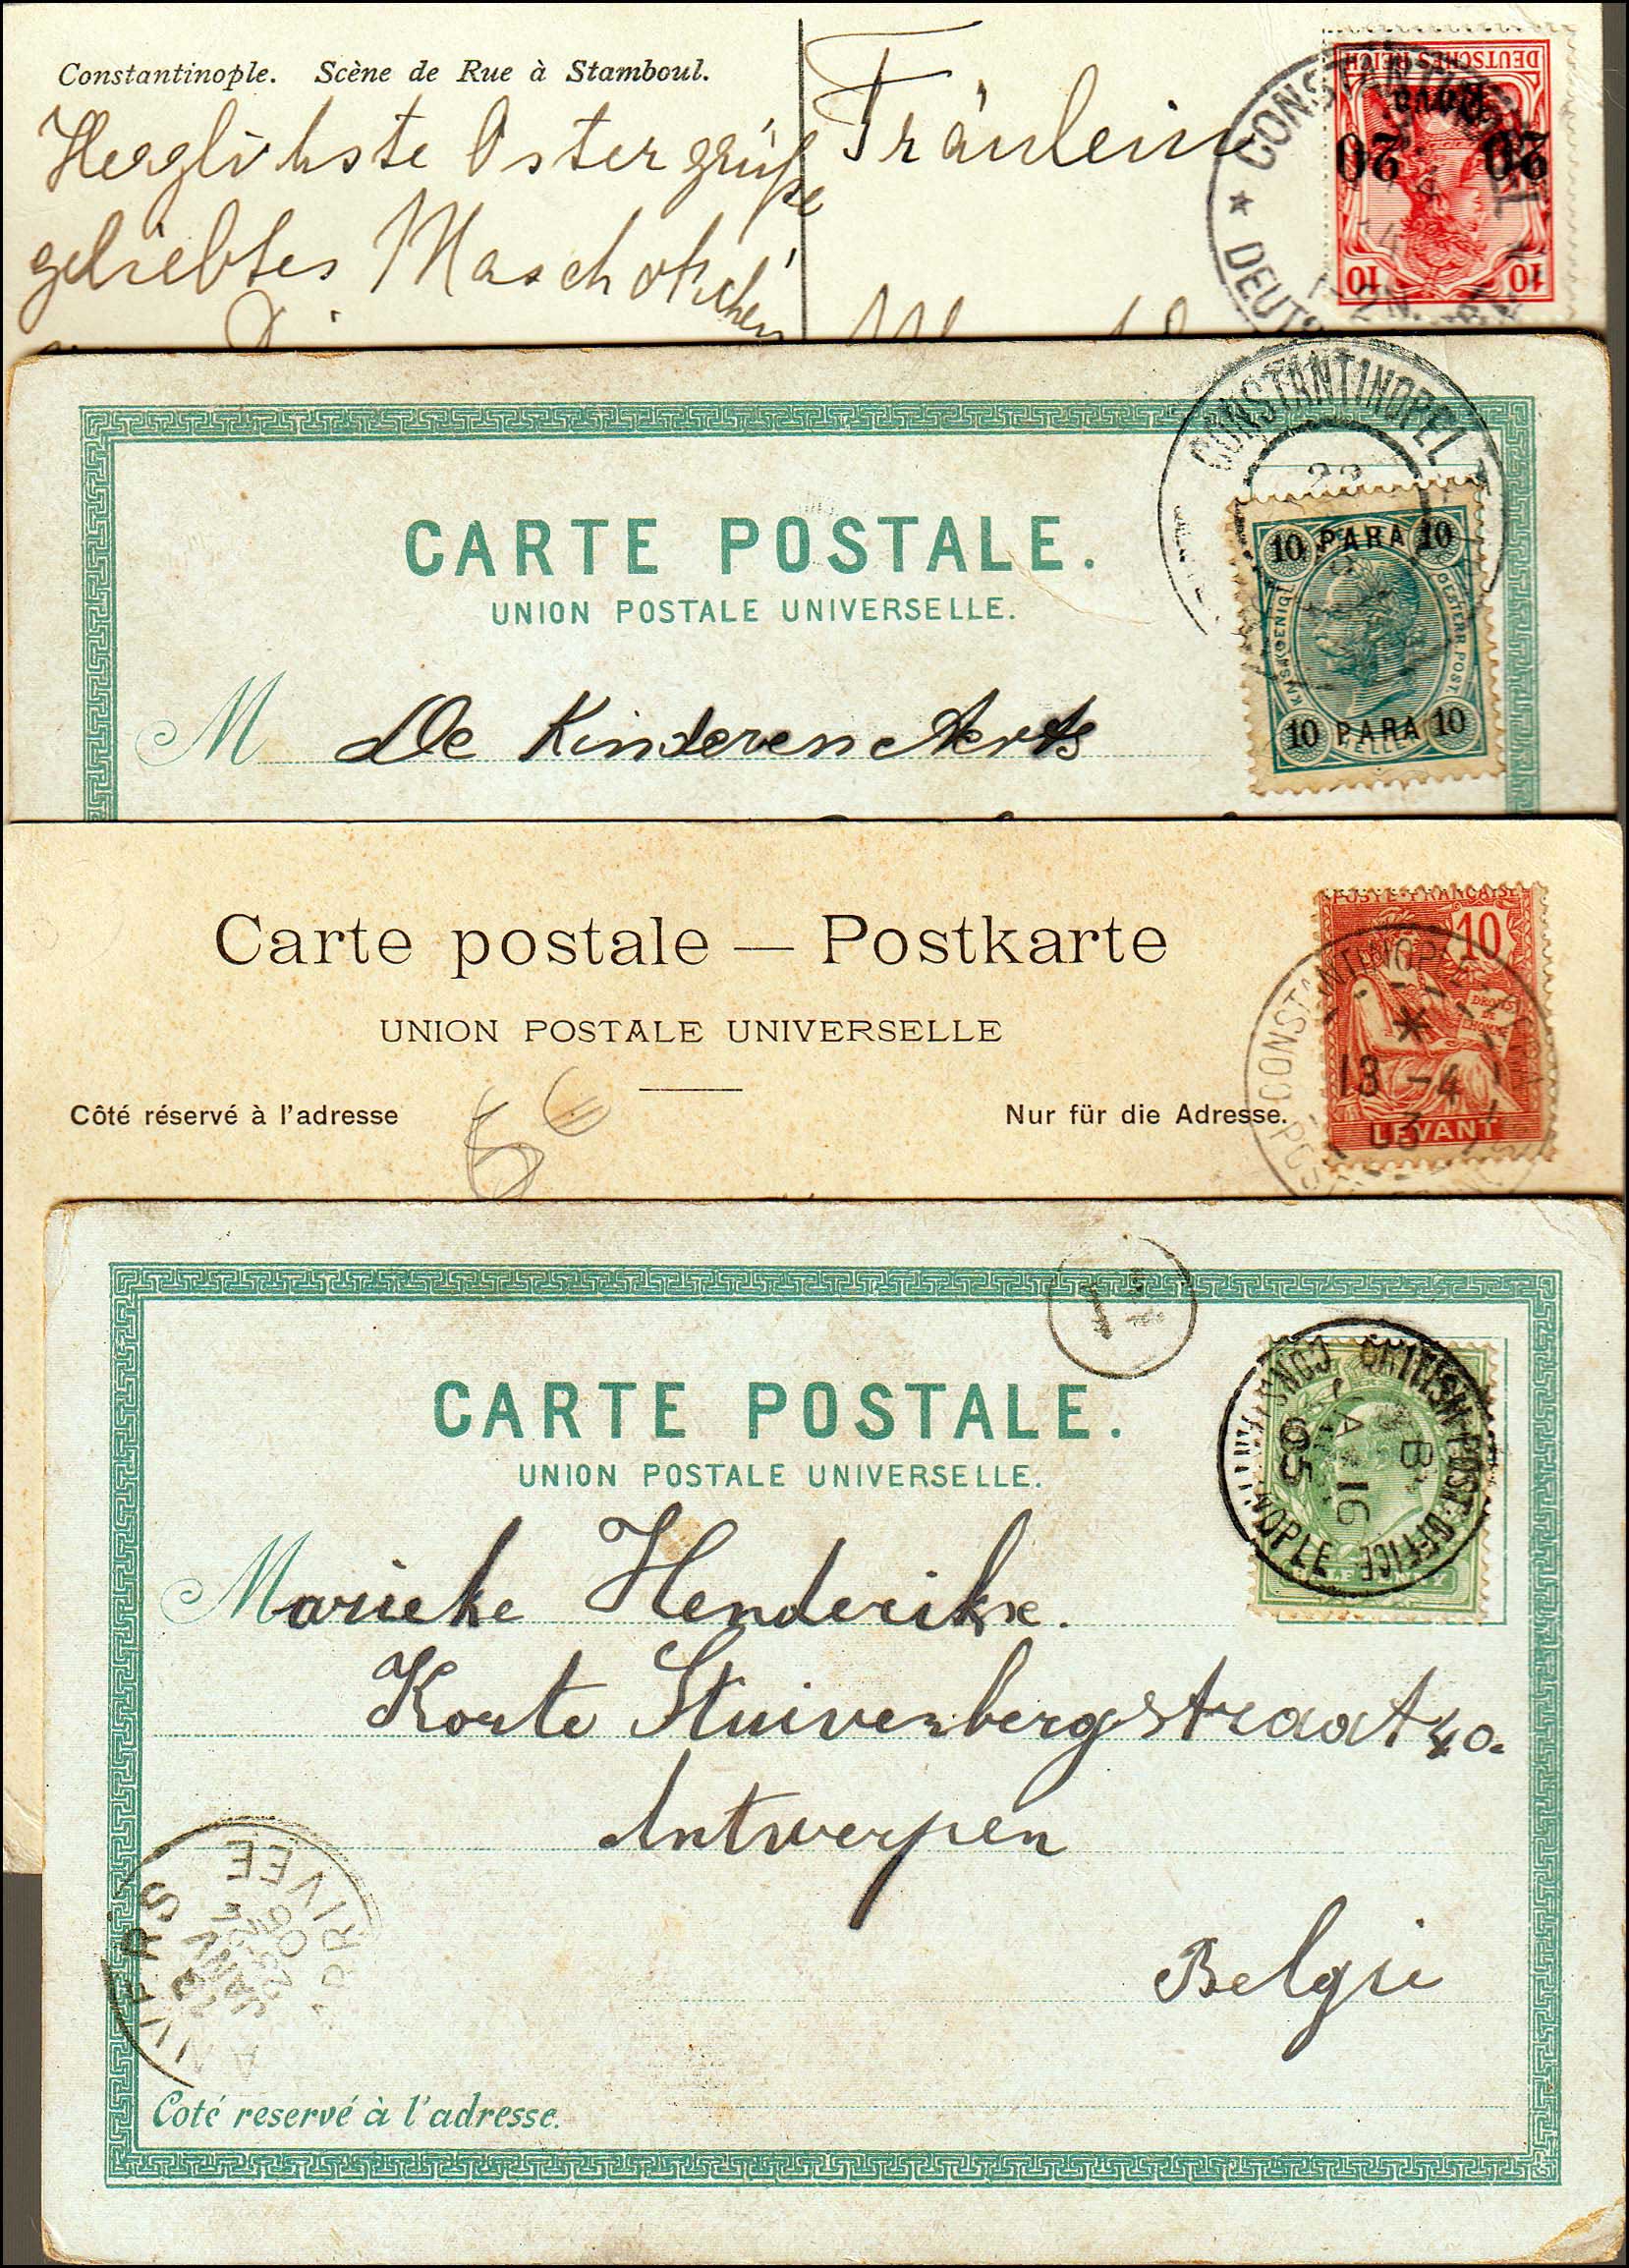 Constantinople. Scène de Rue à Stamboul.
Herzlichste Ostergrüße
geliebtes
Fräulein
CONSTANTINOPEL
DEUTSCHES REICH
20 20
10 10
CARTE POSTALE.
UNION POSTALE UNIVERSELLE.
M De Kinderen Aerts
CONSTANTINOPEL
10 PARA 10
10 PARA 10
Carte postale — Postkarte
UNION POSTALE UNIVERSELLE
Côté réservé à l'adresse
Nur für die Adresse.
POSTE FRANÇAISE
10
DROITS DE L'HOMME
LEVANT
CONSTANTINOPLE
13 -4
03
CARTE POSTALE.
UNION POSTALE UNIVERSELLE.
BRITISH POST OFFICE
CONSTANTINOPLE
B
JA 16
05
HALF PENNY
Marieke Henderikx.
Korte Stuivenbergstraat 40.
Antwerpen
Belgie
ANVERS
ARRIVEE
Coté reservé à l'adresse.